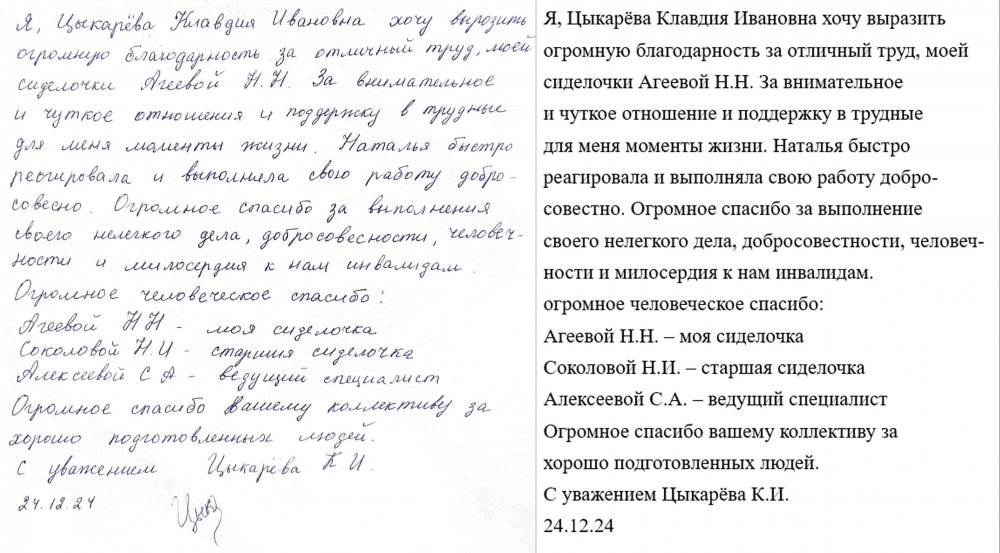 Я, Цыкарёва Клавдия Ивановна хочу вырозить
огромную благодарность за отличный труд, моей
сиделочки Агеевой Н.Н. За внимательное
и чуткое отношения и поддержку в трудные
для меня маменты жизни. Наталья быстро
реогировала и выполняла свою работу добро-
совесно. Огромное спасибо за выполнения
своего нелегкого дела, добросовесности, человеч-
ности и милосердия к нам инвалидам.
Огромное человеческое спасибо:
Агеевой Н Н - моя сиделочка
Соколовой Н.И - старшия сиделочка
Алексеевой С А - ведущий специалист
Огромное спасибо Вашему коллективу за
хорошо подготовленных людей.
С уважением Цыкарёва К.И.
24.12.24
Цыка
Я, Цыкарёва Клавдия Ивановна хочу выразить
огромную благодарность за отличный труд, моей
сиделочки Агеевой Н.Н. За внимательное
и чуткое отношение и поддержку в трудные
для меня моменты жизни. Наталья быстро
реагировала и выполняла свою работу добро-
совестно. Огромное спасибо за выполнение
своего нелегкого дела, добросовестности, человеч-
ности и милосердия к нам инвалидам.
огромное человеческое спасибо:
Агеевой Н.Н. – моя сиделочка
Соколовой Н.И. – старшая сиделочка
Алексеевой С.А. – ведущий специалист
Огромное спасибо вашему коллективу за
хорошо подготовленных людей.
С уважением Цыкарёва К.И.
24.12.24